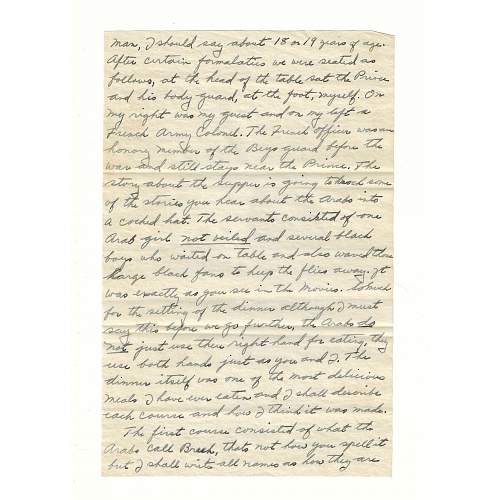 man, I should say about 18 or 19 years of age.
After certain formalaties we were seated as
follows, at the head of the table sat the Prince
and his body guard, at the foot, myself. On
my right was my guest and on my left a
French Army Colonel. The French officer was an
honory member of the Beys guard before the
war and still stays near the Prince. The
story about the supper is going to knock some
of the stories you hear about the Arabs into
a cocked hat. The servants consisted of one
Arab girl not veiled and several black
boys who waited on table and also waved those
large black fans to keep the flies away. It
was exactly as you see in the movies. So much
for the setting of the dinner although I must
say this before we go further, the Arabs do
not just use their right hand for eating, they
use both hands just as you and I. The
dinner itself was one of the most delicious
meals I have ever eaten and I shall describe
each course and how I think it was made.
The first course consisted of what the
Arabs call Breek, thats not how you spell it
but I shall write all names as how they are